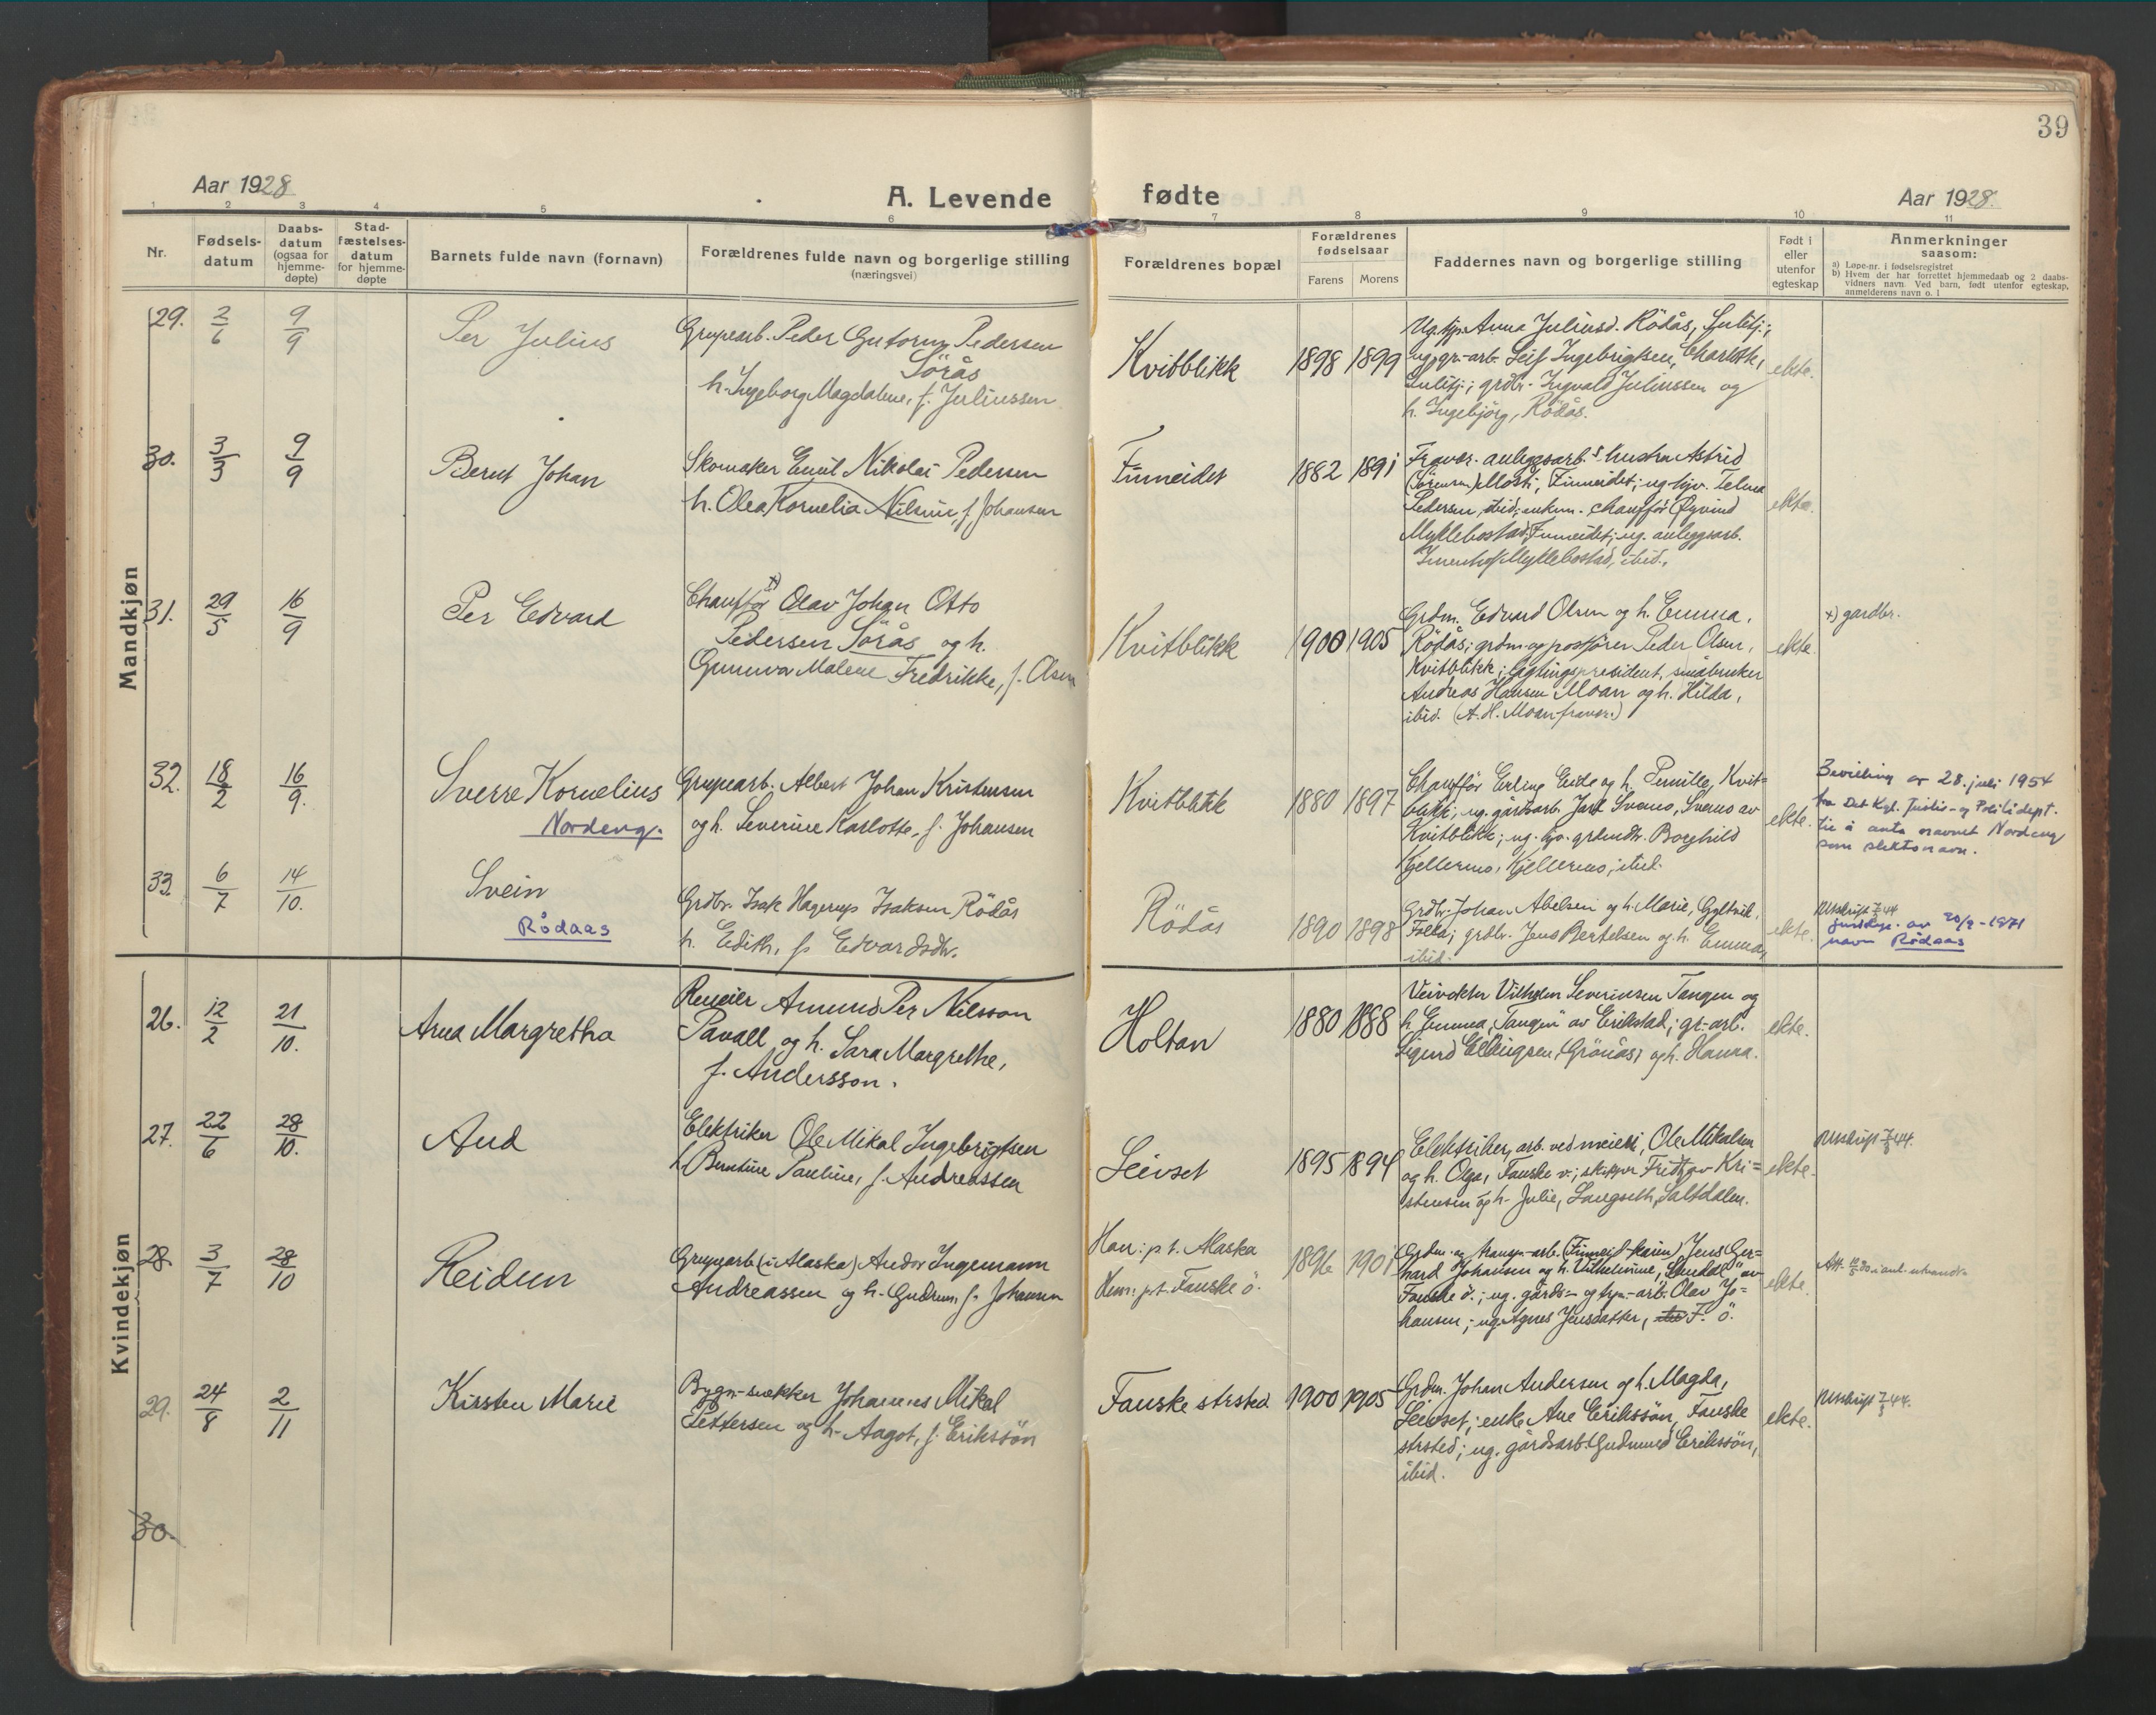 39
Aar 1928
A. Levende fødte
Aar 1928.
1 2 3 4 5 6 7 8 9 10 11
Nr.
Fødsels-
datum
Daabs-
datum
(ogsaa for
hjemme-
døpte)
Stad-
fæstelses-
datum
for hjemme-
døpte
Barnets fulde navn (fornavn)
Forældrenes fulde navn og borgerlige stilling
(næringsvei)
Forældrenes bopæl
Forældrenes
fødselsaar
Farens Morens
Faddernes navn og borgerlige stilling
Født i
eller
utenfor
egteskap
Anmerkninger
saasom:
a) Løpe-nr. i fødselsregistret
b) Hvem der har forrettet hjemmedaab og 2 daabs-
vidners navn. Ved barn, født utenfor egteskap,
anmelderens navn o. l
Mandkjøn
29. 2/6 9/9
Per Julius
Grupearb. Peder Gutorm Pedersen
Sörås
h. Ingeborg Magdalene, f. Juliussen
Kvitblikk
1898 1899
Anna Juliusd. Rödås, Sulitj.;
ug. gr.-arb. Leif Ingebrigtsen, Charlotte,
Sulitj.; grdbr. Ingvald Juliussen og
h. Ingebjörg, Rödås.
ekte.
30. 3/3 9/9
Bernt Johan
Skomaker Emil Nikolai Pedersen
h. Olea Kornelia Nilsine, f. Johansen
Finneidet
1882 1891
Fravær. anleggsarb.s hustru Astrid
(Sörensen) Mosti, Finneidet; ug. hjv. Telma
Pedersen, ibid; enkem. chaufför Øyvind
Myklebostad, Finneidet; ug. anleggsarb.
Myklebostad, ibid.
ekte.
31. 29/5 16/9
Per Edvard
Chaufför x) Olav Johan Otto
Pedersen Sörås og h.
Gunnva Malene Fredrikke, f. Olsen
Kvitblikk
1900 1905
Grdm. Edvard Olsen og h. Emma,
Rödås; grdm og postförer Peder Olsen,
Kvitblikk; lagtingspresident, småbruker
Andreas Hansen Moan og h. Hilda,
ibid. (A. H. Moan fravær.)
ekte.
x) gardbr.
32. 18/2 16/9.
Sverre Kornelius
Nordeng.
Grupearb. Albert Johan Kristensen
og h. Severine Karlotte, f. Johansen
Kvitblikk
1880 1897
Chauffør Erling Eide og h. Pernille, Kvit=
blikk; ug. gårdsarb. Jarl Sveno, Sveno av
Kvitblikk; ug. hjv. Borghild
Kjellermo, Kjellermo, ibid.
ekte.
Bevilling av 28. juli 1954
fra Det Kgl. Justis- og Politidept.
til å anta navnet Nordeng
som slektsnavn.
33. 6/7 14/10.
Svein
Rødaas
Grdbr. Isak Hagerup Isaksen Rödås
h. Edith, f. Edvardsdtr.
Rödås
1890 1898
Grdbr. Johan Abelsen og h. Marie, Gyltvik,
Folla; grdbr. Jens Bertelsen og h. Emma,
ibid.
ekte.
Utskrift 7/3 44
av 20/2-1971
navn Rødaas
Kvindekjøn
26. 12/2 21/10.
Anna Margretha
Reneier Amund Per Nilsson
Pavall og h. Sara Margrethe,
f. Andersson.
Holtan
1880 1888
Veivokter Vilhelm Severinsen Tangen og
h. Emma, "Tangen" av Erikstad; gr-arb.
Sigurd Ellingsen, Grönås, og h. Hanna.
ekte.
27. 22/6 28/10.
Aud
Elektriker Ole Mikal Ingebrigtsen
h. Berntine Pauline, f. Andreassen
Leivset
1895 1894
Elektriker, arb. ved meieri, Ole Mikalsen
og h. Olga, Fauske v.; skipper Fridtjov Kri=
stensen og h. Julie, Langseth, Saltdalen.
ekte.
Utskrift 7/3 44.
28. 3/7 28/10
Reidun
Grupearb (i Alaska) Andor Ingemann
Andreassen og h. Gudrun, f. Johansen
Han: p. t. Alaska
Hun: p. t. Fauske ö.
1896 1901
Grdm. og transp-arb. (Finneid-kaien) Jens Ger=
hard Johansen og h. Vilhelmine, "Lendal" av
Fauske ö.; ug. gårds- og arb. Olav Jo=
hansen; ug. Agnes Jensdatter, F. ö.
ekte.
29. 24/8 2/11
Kirsten Marie
Bygn-snekker Johannes Mikal
Pettersen og h. Aagot, f. Eriksön
Fauske strsted
1900 1905
Grdm. Johan Andersen og h. Magda,
Leivset; enke Ane Eriksön, Fauske
strsted; ug. gårdsarb. Gudmund Eriksön,
ibid.
ekte.
Utskrift 7/3 44.
30.